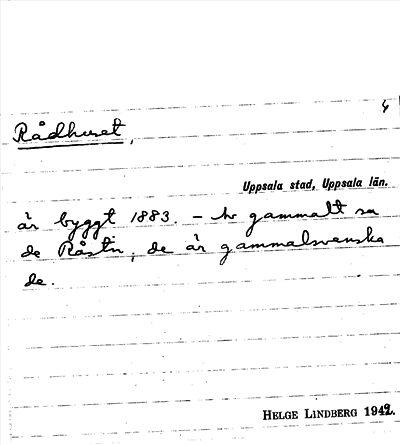 4
Rådhuset,
Uppsala stad, Uppsala län.
är byggt 1883. – gammalt sa
de Råstu, de är gammalsvenska
de.
HELGE LINDBERG 1942.